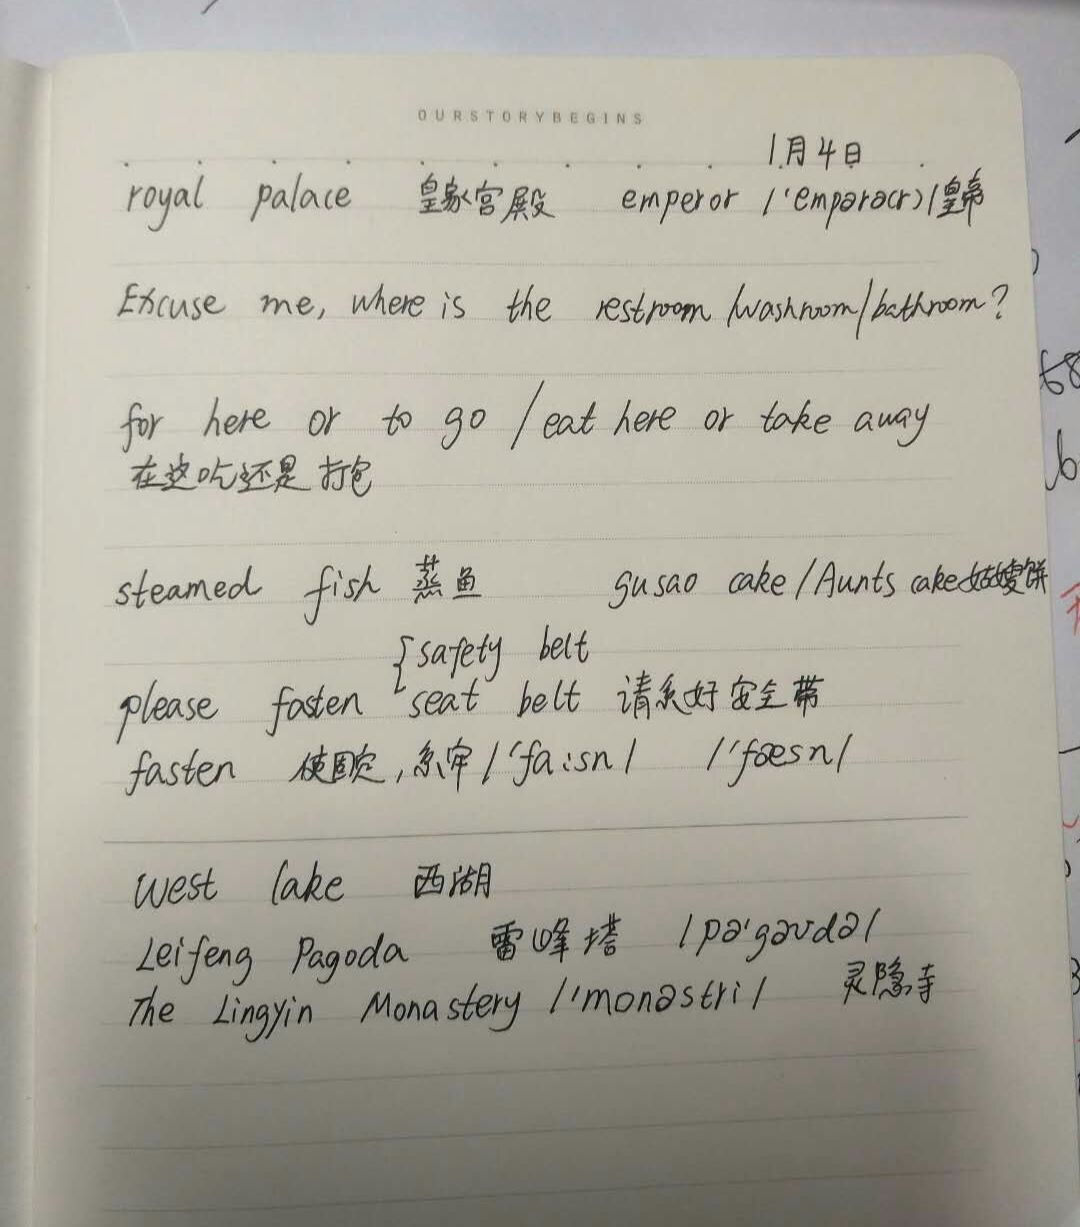 OURSTORYBEGINS
1月4日
royal palace 皇家宫殿 emperor /'empərə(r)/皇帝
Excuse me, where is the restroom/washroom/bathroom?
for here or to go / eat here or take away
在这吃还是打包
steamed fish 蒸鱼 gusao cake/Aunts cake姑嫂饼
{safety belt
please fasten seat belt 请系好安全带
fasten 使固定,系牢/'fa:sn/ /'fæsn/
West lake 西湖
Leifeng Pagoda 雷峰塔 /pə'gəʊdə/
The Lingyin Monastery /'monəstri/ 灵隐寺